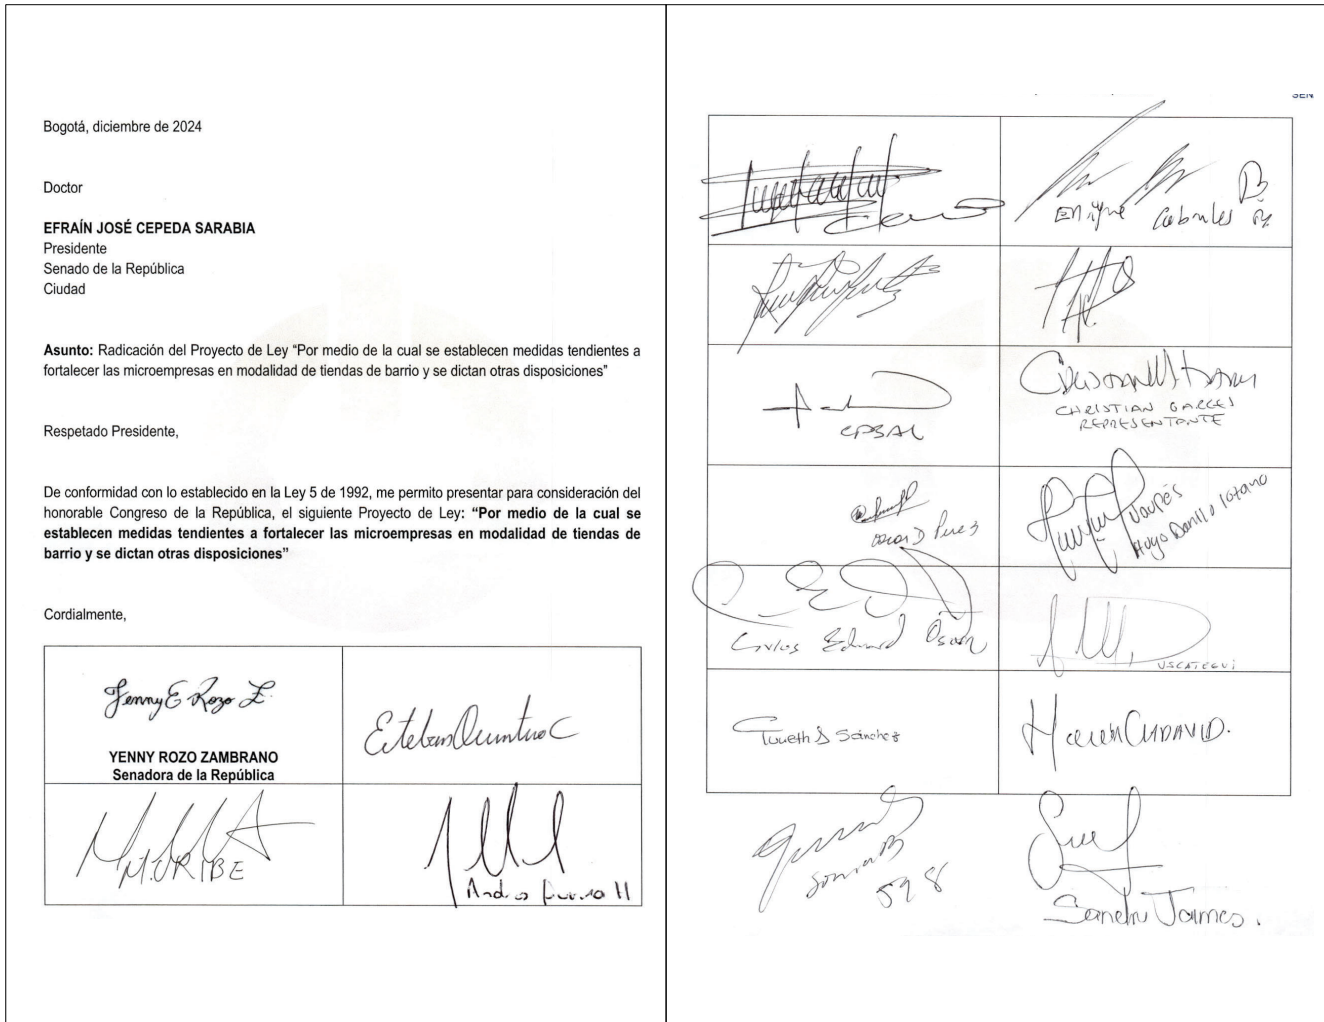 Bogotá, diciembre de 2024
Doctor
EFRAÍN JOSÉ CEPEDA SARABIA
Presidente
Senado de la República
Ciudad
Asunto: Radicación del Proyecto de Ley “Por medio de la cual se establecen medidas tendientes a
fortalecer las microempresas en modalidad de tiendas de barrio y se dictan otras disposiciones”
Respetado Presidente,
De conformidad con lo establecido en la Ley 5 de 1992, me permito presentar para consideración del
honorable Congreso de la República, el siguiente Proyecto de Ley: “Por medio de la cual se
establecen medidas tendientes a fortalecer las microempresas en modalidad de tiendas de
barrio y se dictan otras disposiciones”
Cordialmente,
Yenny E Rozo Z.
YENNY ROZO ZAMBRANO
Senadora de la República
Esteban Quintero C
M. URIBE
SEN
Enrique Cabrales B
CHRISTIAN GARCES
REPRESENTANTE
Oscar D Perez
Vaupés
Hugo Danilo Lozano
Carlos Eduard
USCATEGUI
Yulieth S Sánchez
Sandra Jaimes.